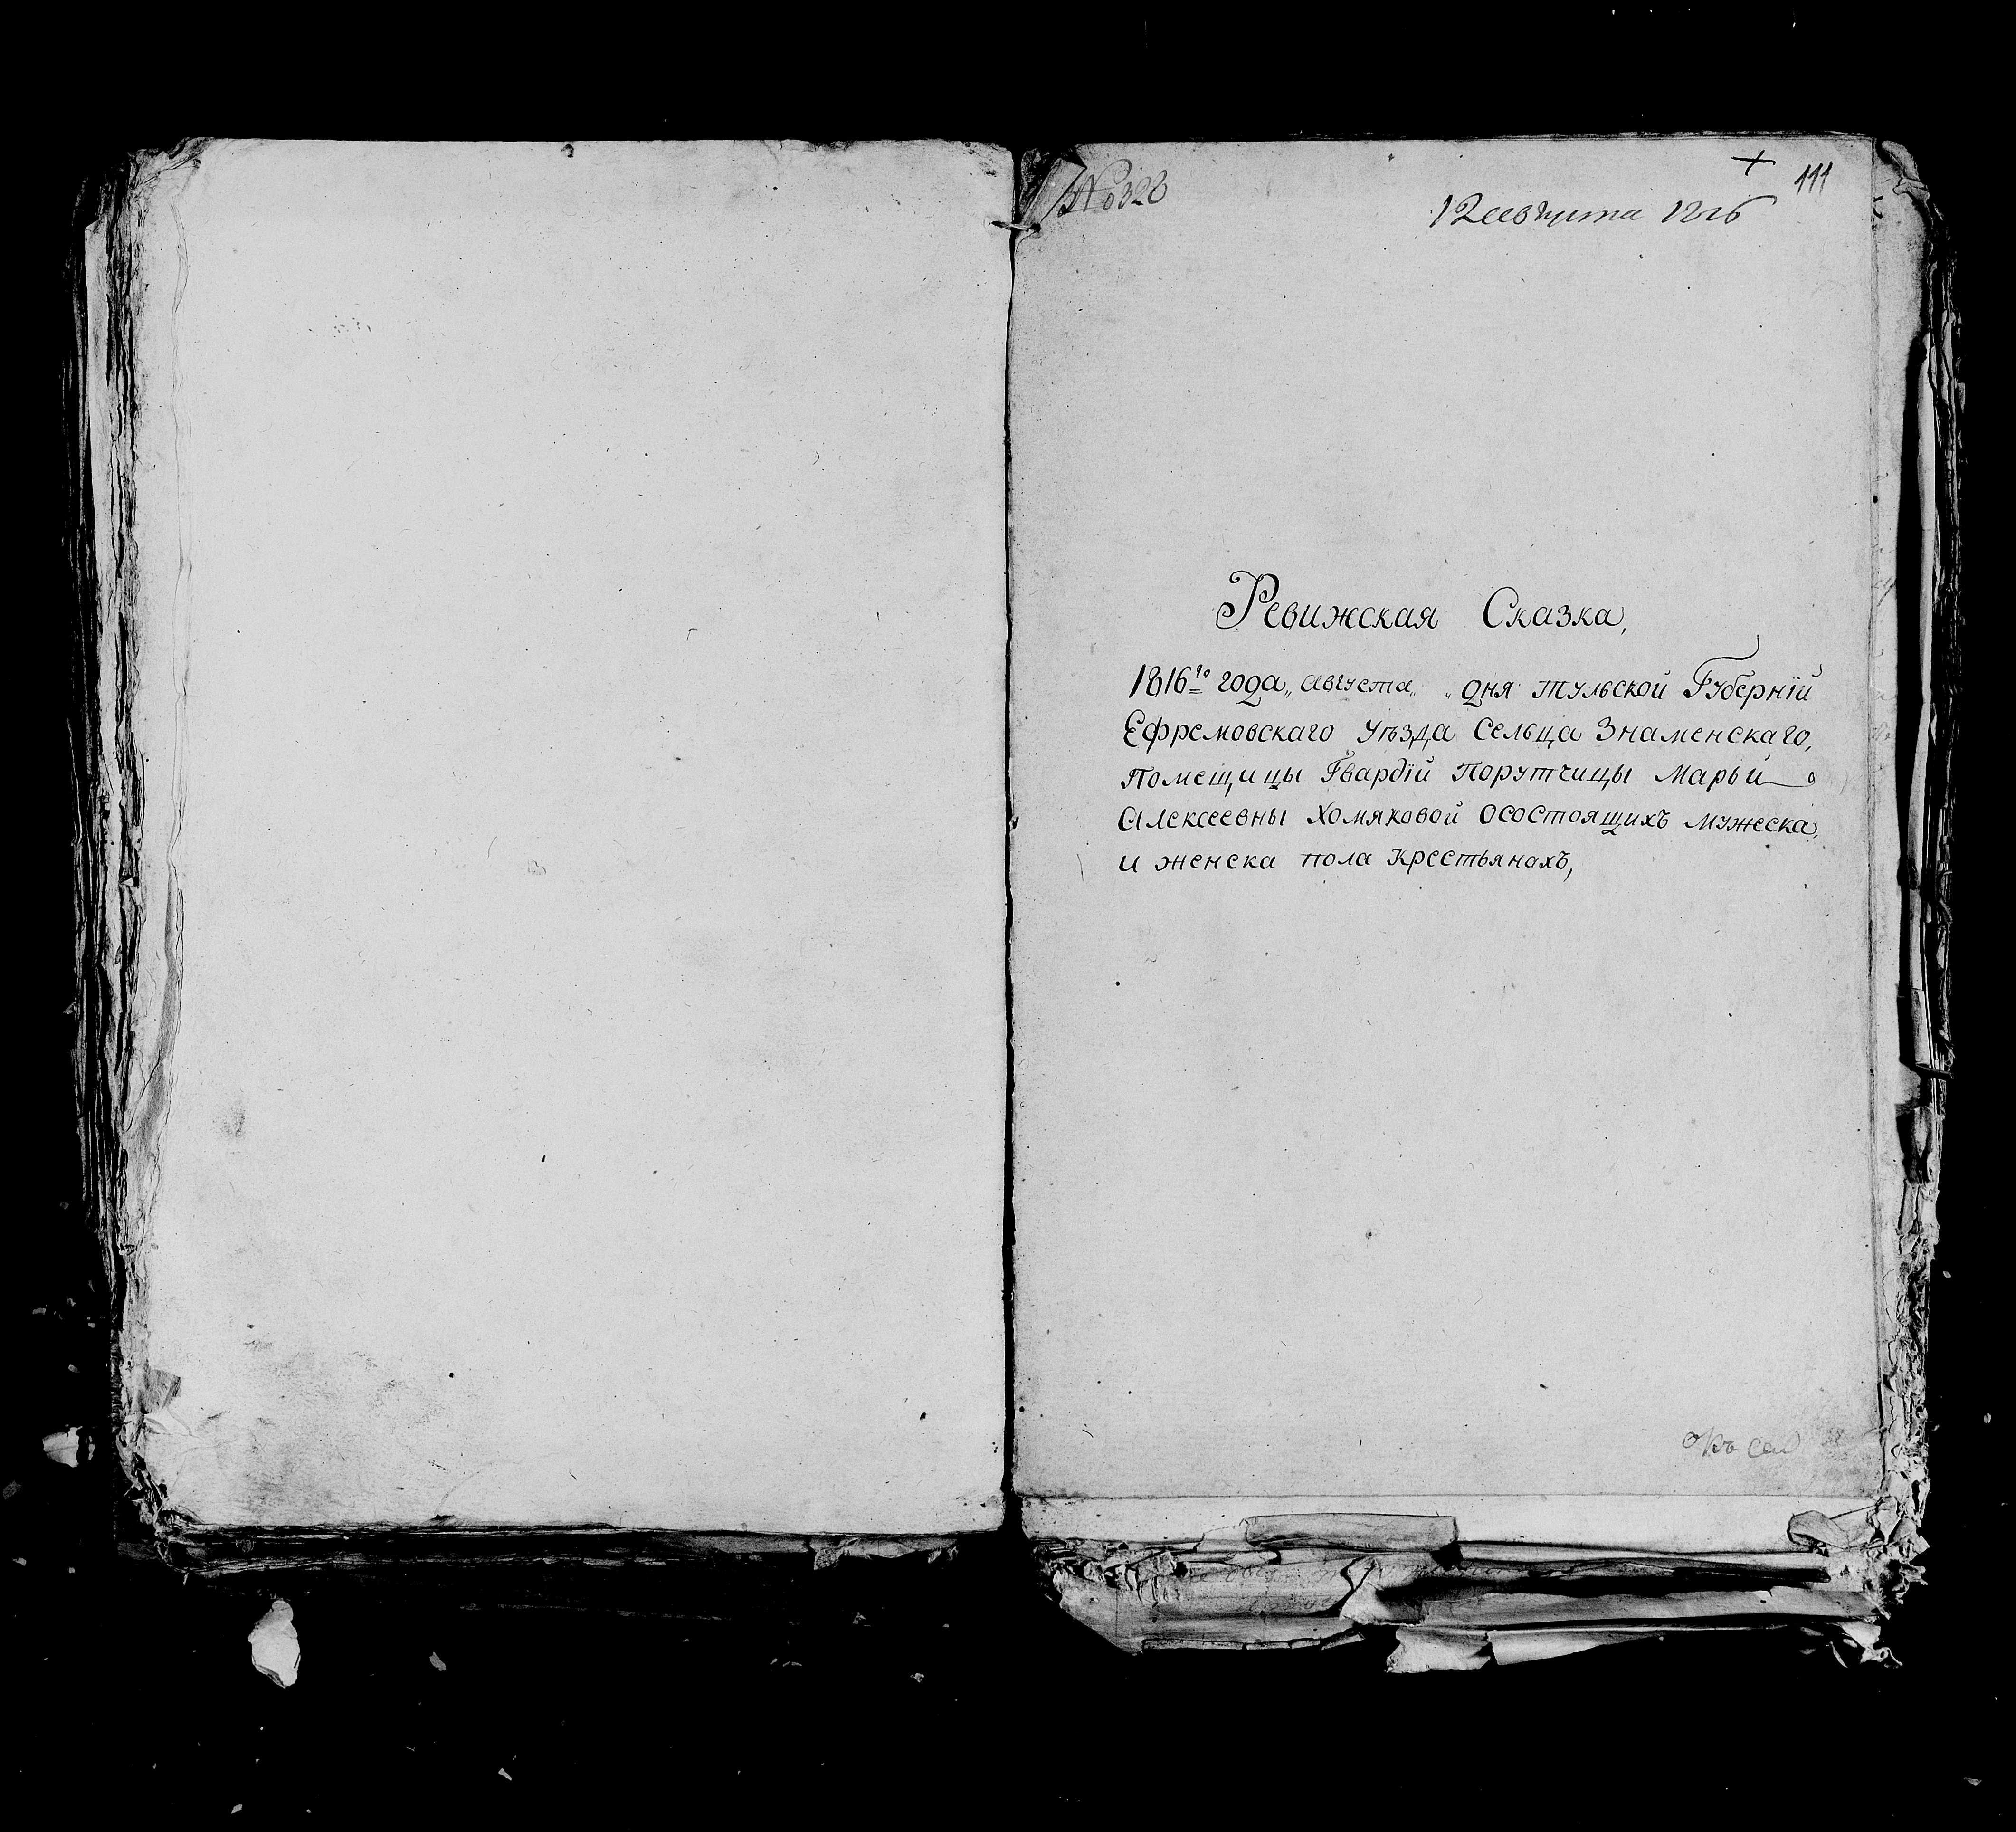 № 328
111
12 августа 1816
Ревижская Сказка,
1816го года „ августа „ „ дня тульской Губернїй
Ефремовскаго уѣзда сельца Знаменскаго,
Помещицы Гвардїй Порутчицы Марьи
Алексеевны Хомяковой осостоящихъ мужеска,
и женска пола крестьянахъ,